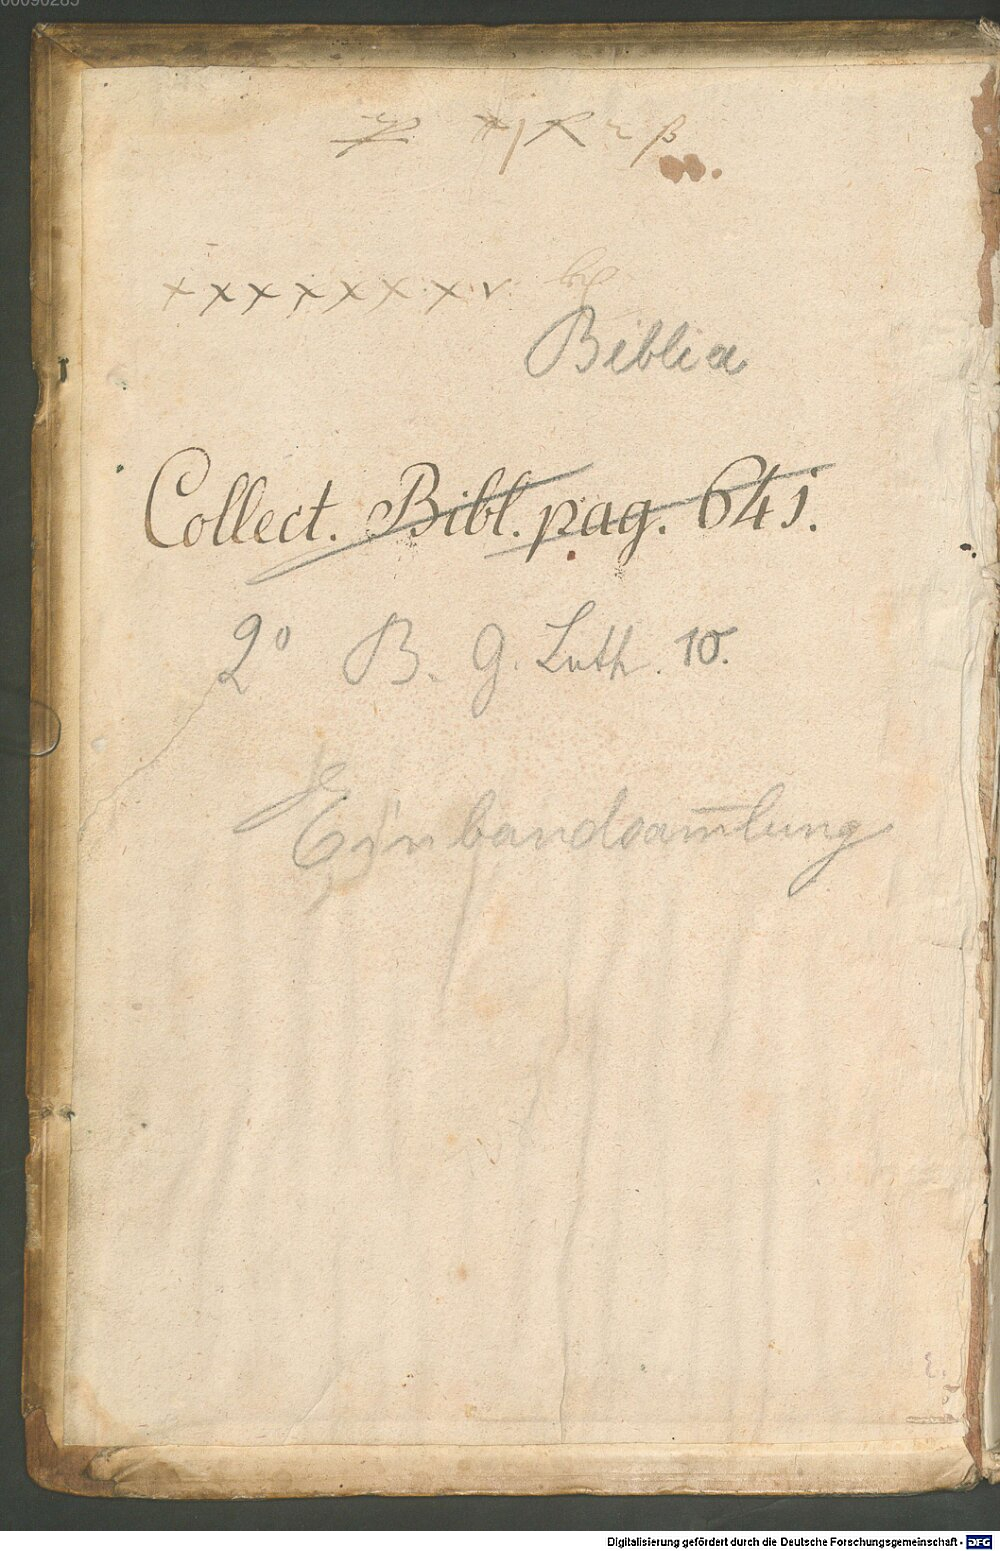 00096285
x x x x x x x v
Biblia
Collect. Bibl. pag. 641.
2° B. G. Luth. 10.
Einbandsam̅lung
Digitalisierung gefördert durch die Deutsche Forschungsgemeinschaft - DFG